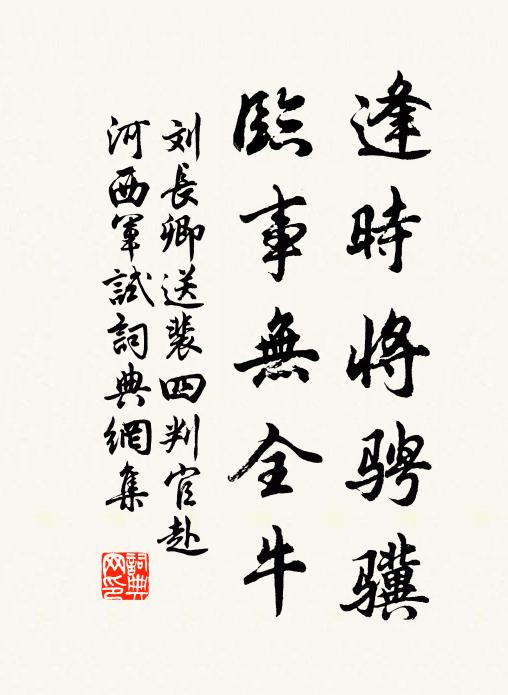 逢時将骋骥
臨事無全牛
刘長卿送裴四判官赴
河西軍試詞典網集
詞典
网印